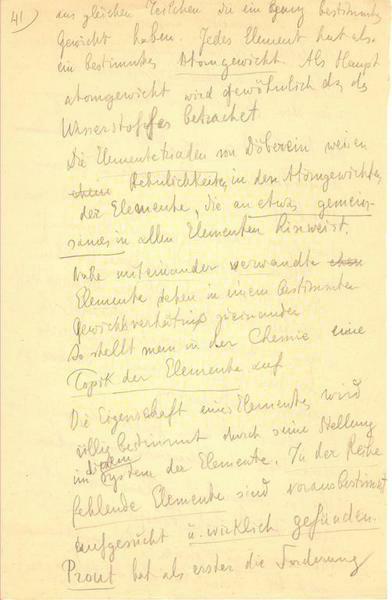 41)
aus gleichen Teilchen die ein bestimmtes
Gewicht haben. Jedes Element hat als.
ein bestimmtes Atomgewicht. Als Haupt
atomgewicht wird gewöhnlich das des
Wasserstoffes betrachtet
Die Elemententriaden von Döberein weisen
Aehnlichkeiten in den Atomgewichten
der Elemente, die an etwas gemein-
sames in allen Elementen hinweist.
Nahe miteinander verwandte
Elemente stehen in einem bestimmten
Gewichtsverhältnis zueinander
So stellt man in der Chemie eine
Topik der Elemente auf
Die Eigenschaft eines Elementes wird
völlig bestimmt durch seine Stellung
im diesem System der Elemente. In der Reihe
fehlende Elemente sind vorausbestimmt
aufgesucht u. wirklich gefunden.
Prout hat als erster die Forderung